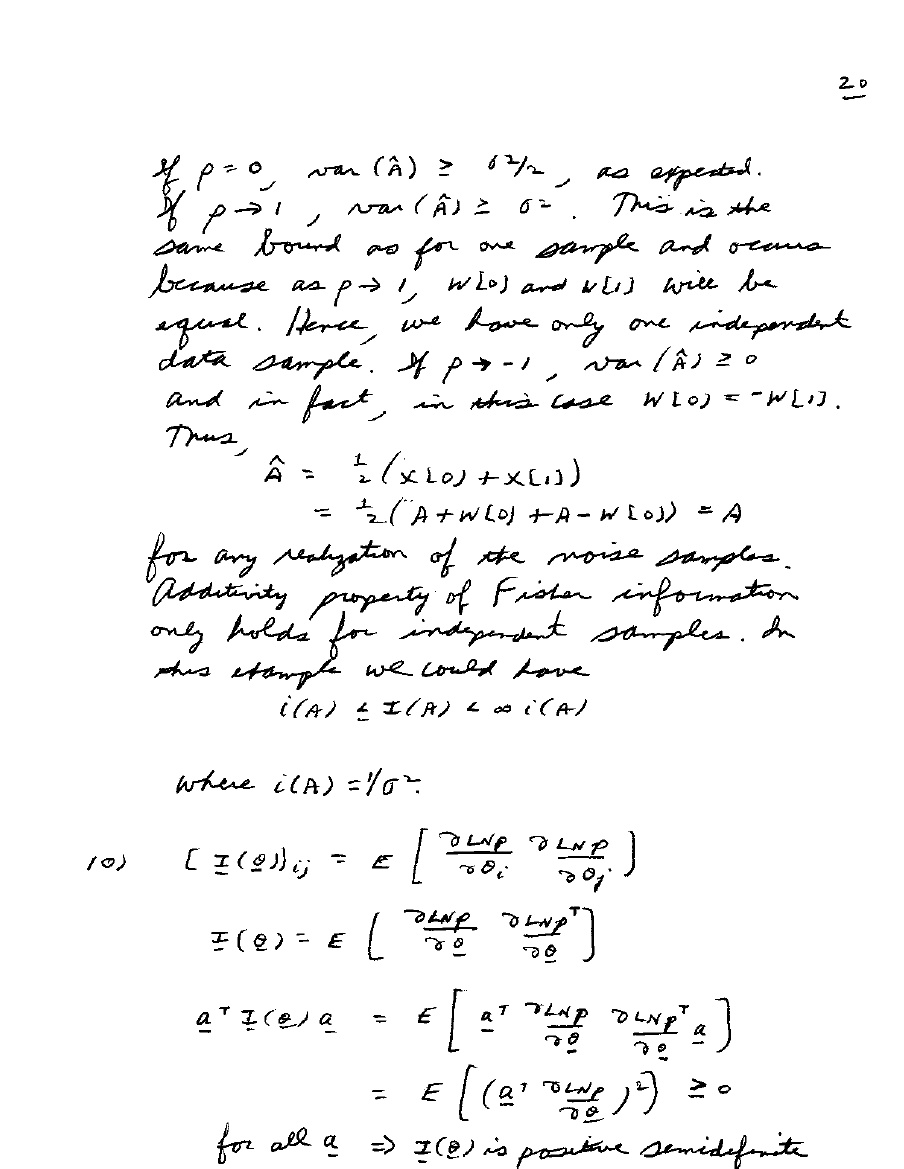 20
If ρ = 0, var(Â) ≥ σ²/2, as expected.
If ρ → 1, var(Â) ≥ σ². This is the
same bound as for one sample and occurs
because as ρ → 1, W[0] and W[1] will be
equal. Hence, we have only one independent
data sample. If ρ → -1, var(Â) ≥ 0
and in fact, in this case W[0] = -W[1].
Thus,
Â = ½(X[0] + X[1])
= ½(A + W[0] + A - W[0]) = A
for any realization of the noise samples.
Additivity property of Fisher information
only holds for independent samples. In
this example we could have
i(A) ≤ I(A) < ∞ i(A)
where i(A) = 1/σ².
10) [I(θ)]ij = E [ ∂LNp/∂θi ∂LNp/∂θj ]
I(θ) = E [ ∂LNp/∂θ ∂LNp/∂θ^T ]
a^T I(θ) a = E [ a^T ∂LNp/∂θ ∂LNp/∂θ^T a ]
= E [ (a^T ∂LNp/∂θ)² ] ≥ 0
for all a ⇒ I(θ) is positive semidefinite